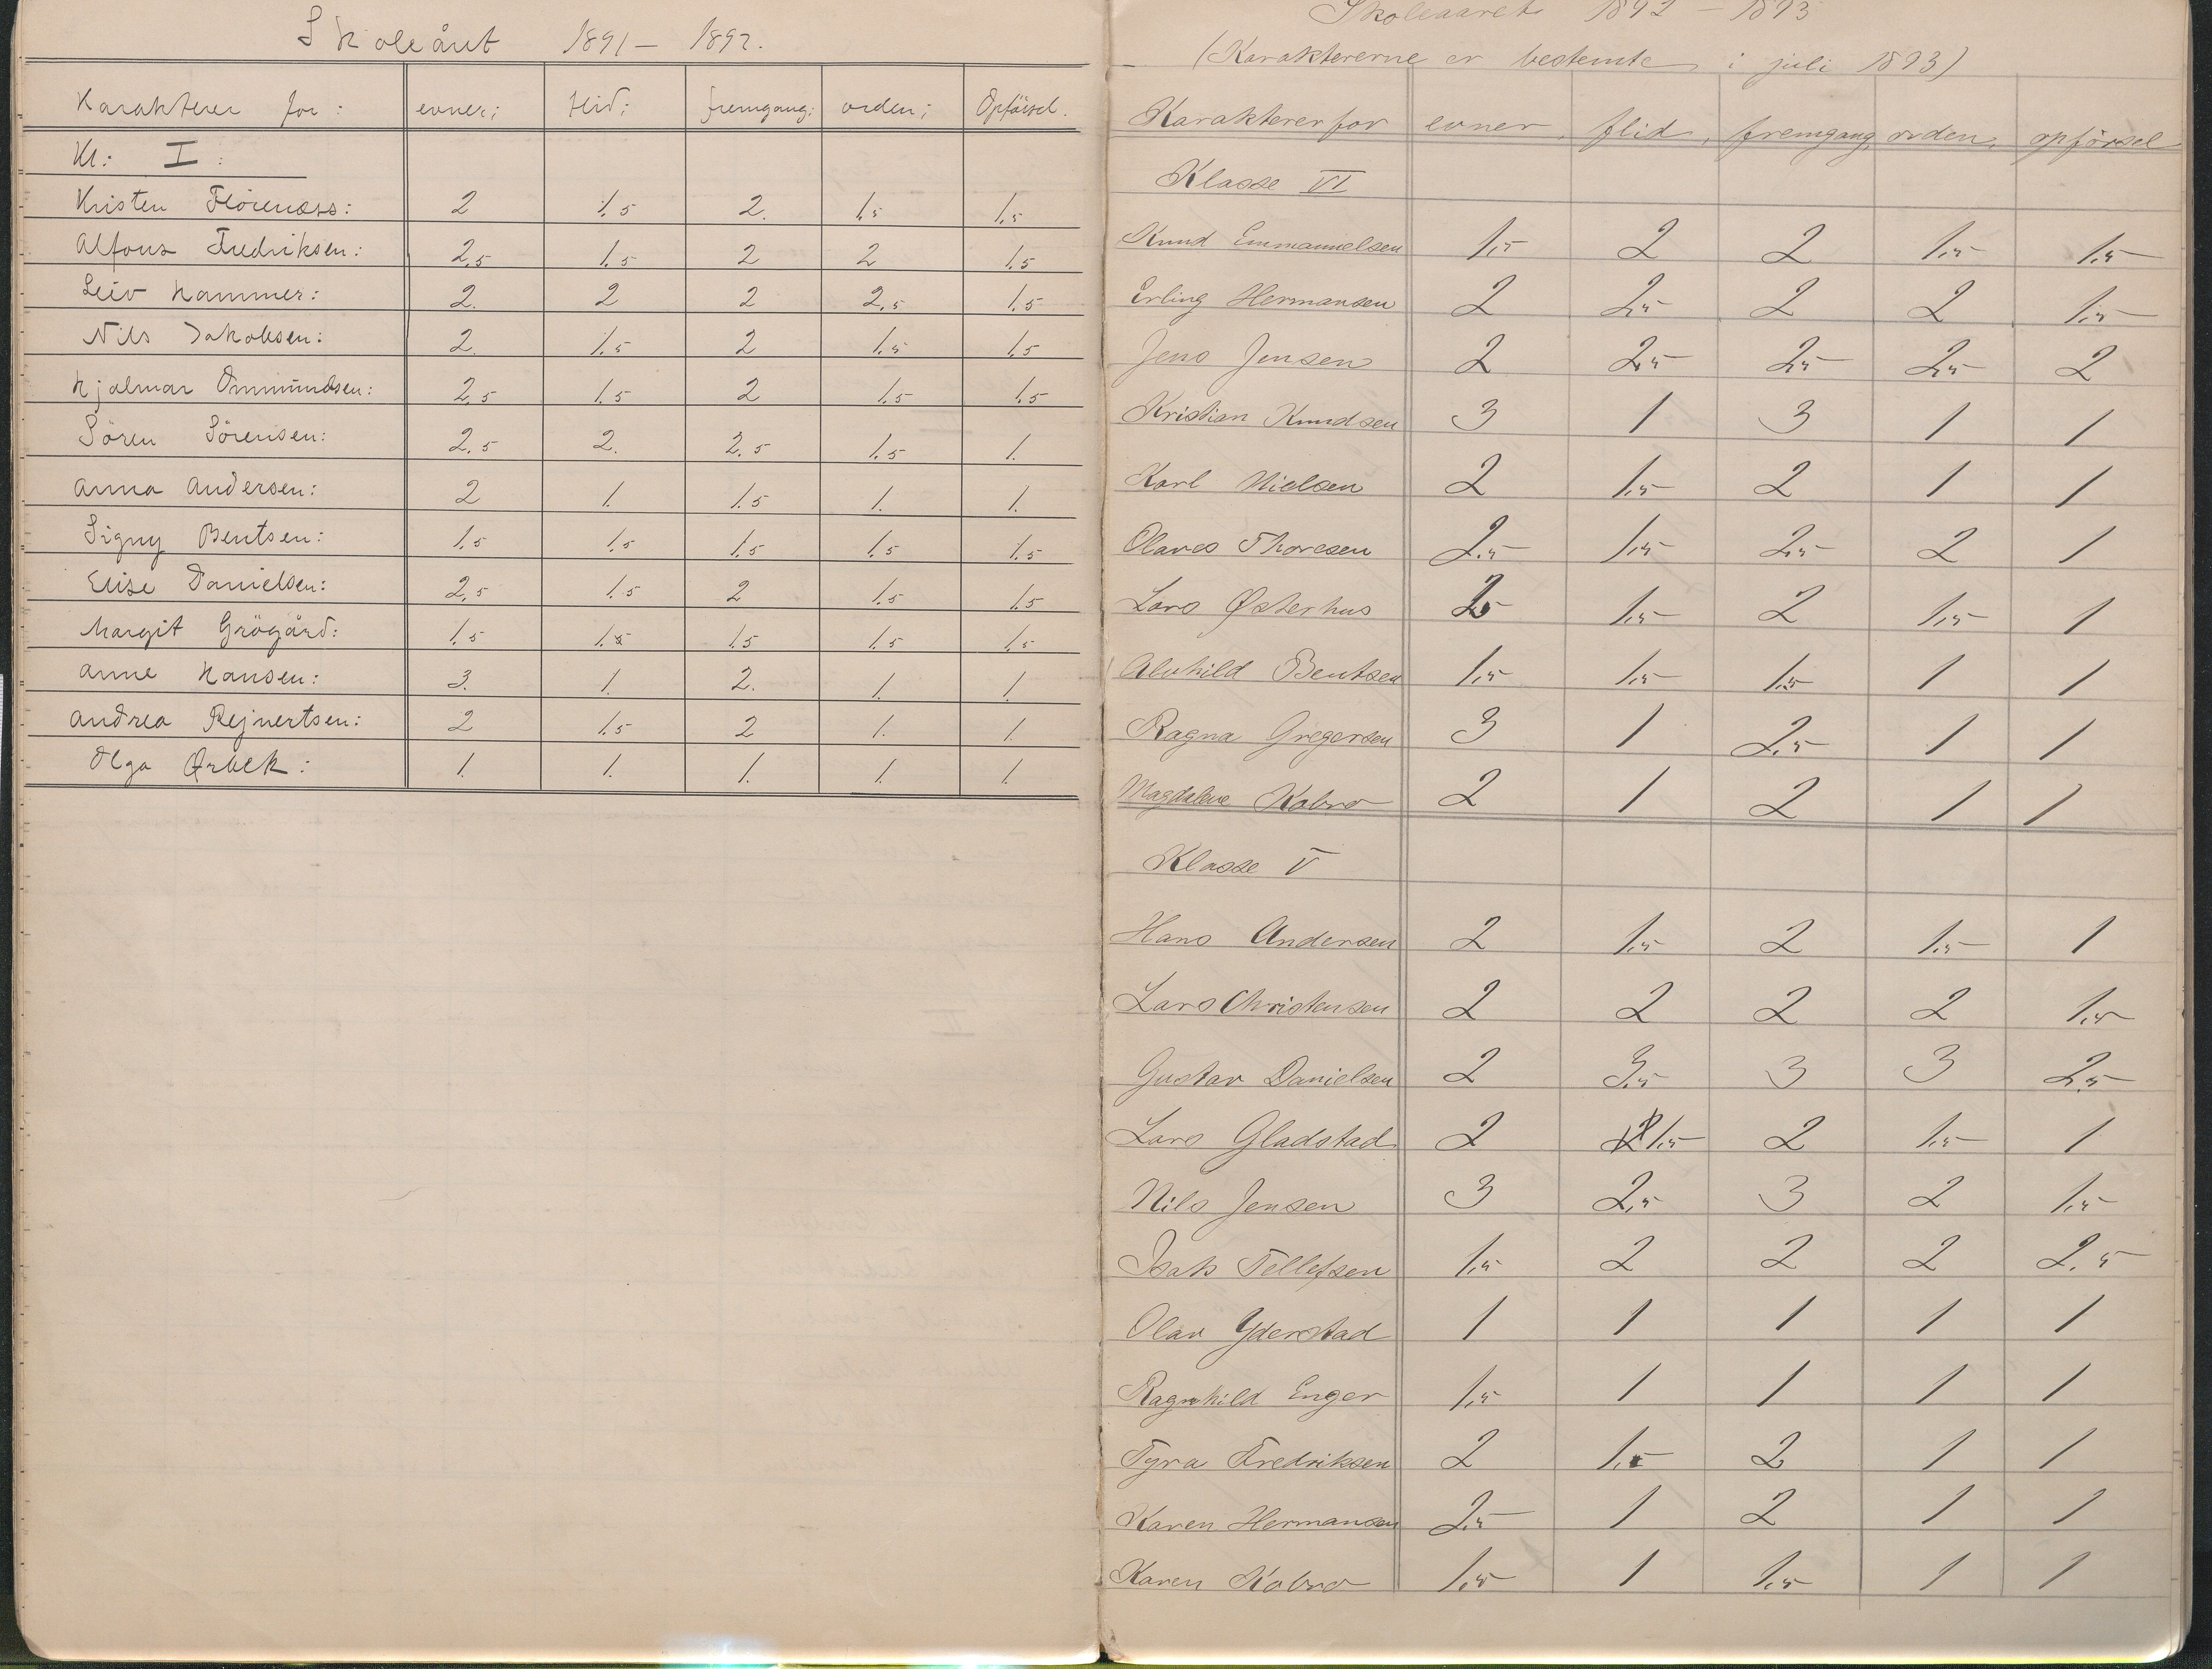 Skoleåret 1891 – 1892.
Karakterer for: evner; flid; fremgang; orden; Opførsel.
Kl: I:
Kristen Flørenæss: 2 1.5 2. 1.5 1.5
Alfons Fredriksen: 2.5 1.5 2 2 1.5
Leiv Hammer: 2. 2 2 2.5 1.5
Nils Jakobsen: 2. 1.5 2 1.5 1.5
Hjalmar Ommundsen: 2.5 1.5 2 1.5 1.5
Sören Sörensen: 2.5 2. 2.5 1.5 1.
Anna Andersen: 2 1. 1.5 1. 1.
Signy Bentsen: 1.5 1.5 1.5 1.5 1.5
Elise Danielsen: 2.5 1.5 2 1.5 1.5
Margit Grögård: 1.5 1.5 1.5 1.5 1.5
Anne Hansen: 3. 1. 2. 1. 1.
Andrea Rejnertsen: 2 1.5 2 1. 1.
Olga Ørbek: 1. 1. 1. 1. 1.
Skoleaaret 1892 – 1893
(Karaktererne er bestemte i juli 1893)
Karakterer for evner, flid, fremgang, orden, opförsel
Klasse VI
Knud Emmanuelsen 1.5 2 2 1.5 1.5
Erling Hermansen 2 2.5 2 2 1.5
Jens Jensen 2 2.5 2.5 2.5 2
Kristian Knudsen 3 1 3 1 1
Karl Nielsen 2 1.5 2 1 1
Olaves Thoresen 2.5 1.5 2.5 2 1
Lars Østerhus 2.5 1.5 2 1.5 1
Alvhild Bentsen 1.5 1.5 1.5 1 1
Ragna Gregersen 3 1 2.5 1 1
Magdalene Kobro 2 1 2 1 1
Klasse V
Hans Andersen 2 1.5 2 1.5 1
Lars Christensen 2 2 2 2 1.5
Gustav Danielsen 2 3.5 3 3 2.5
Lars Gladstad 2 1.5 2 1.5 1
Nils Jensen 3 2.5 3 2 1.5
Isak Tellefsen 1.5 2 2 2 2.5
Olav Yderstad 1 1 1 1 1
Ragnhild Enger 1.5 1 1 1 1
Tyra Fredriksen 2 1.5 2 1 1
Karen Hermansen 2.5 1 2 1 1
Karen Kobro 1.5 1 1.5 1 1